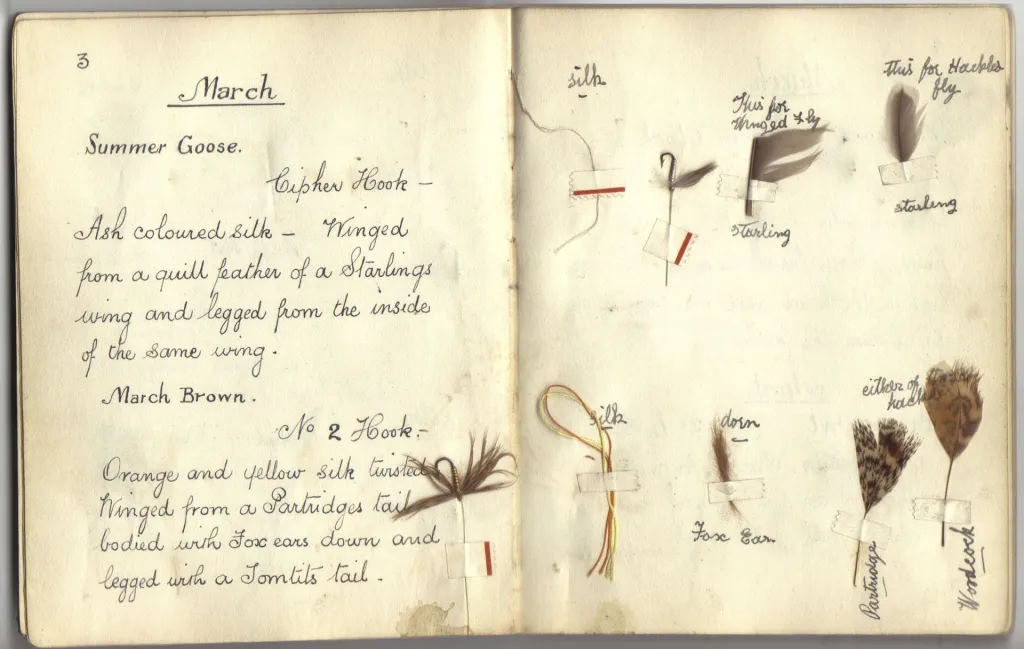 3
March
Summer Goose.
Cipher Hook -
Ash coloured silk - Winged
from a quill feather of a Starlings
wing and legged from the inside
of the same wing.
March Brown.
No 2 Hook.-
Orange and yellow silk twisted
Winged from a Partridges tail
bodied with Fox ears down and
legged with a Tomtits tail.
silk
This for
Winged Fly
starling
this for Hackles
fly
starling
silk
down
Fox Ear
either of
hackle
Partridge
Woodcock